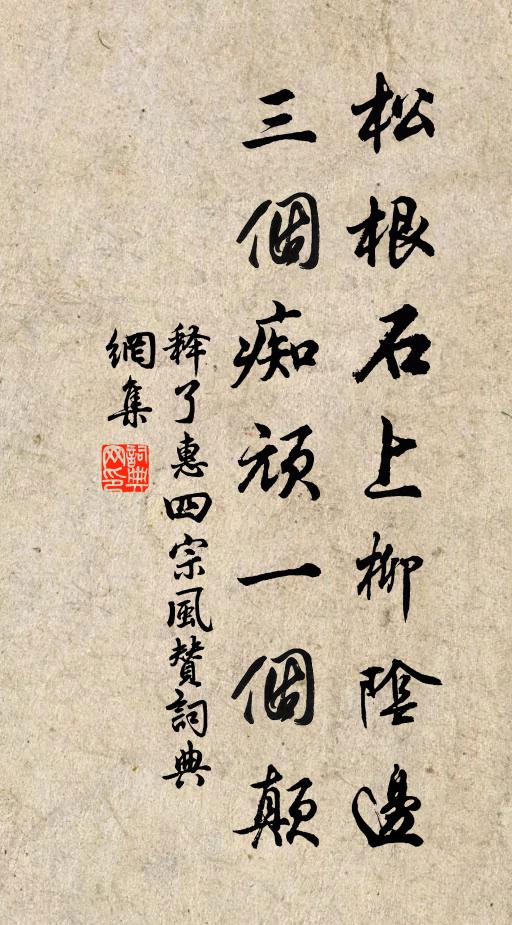 松根石上柳陰邊
三個痴頑一個顛
释了惠四宗風贊詞典
網集
詞典
网印